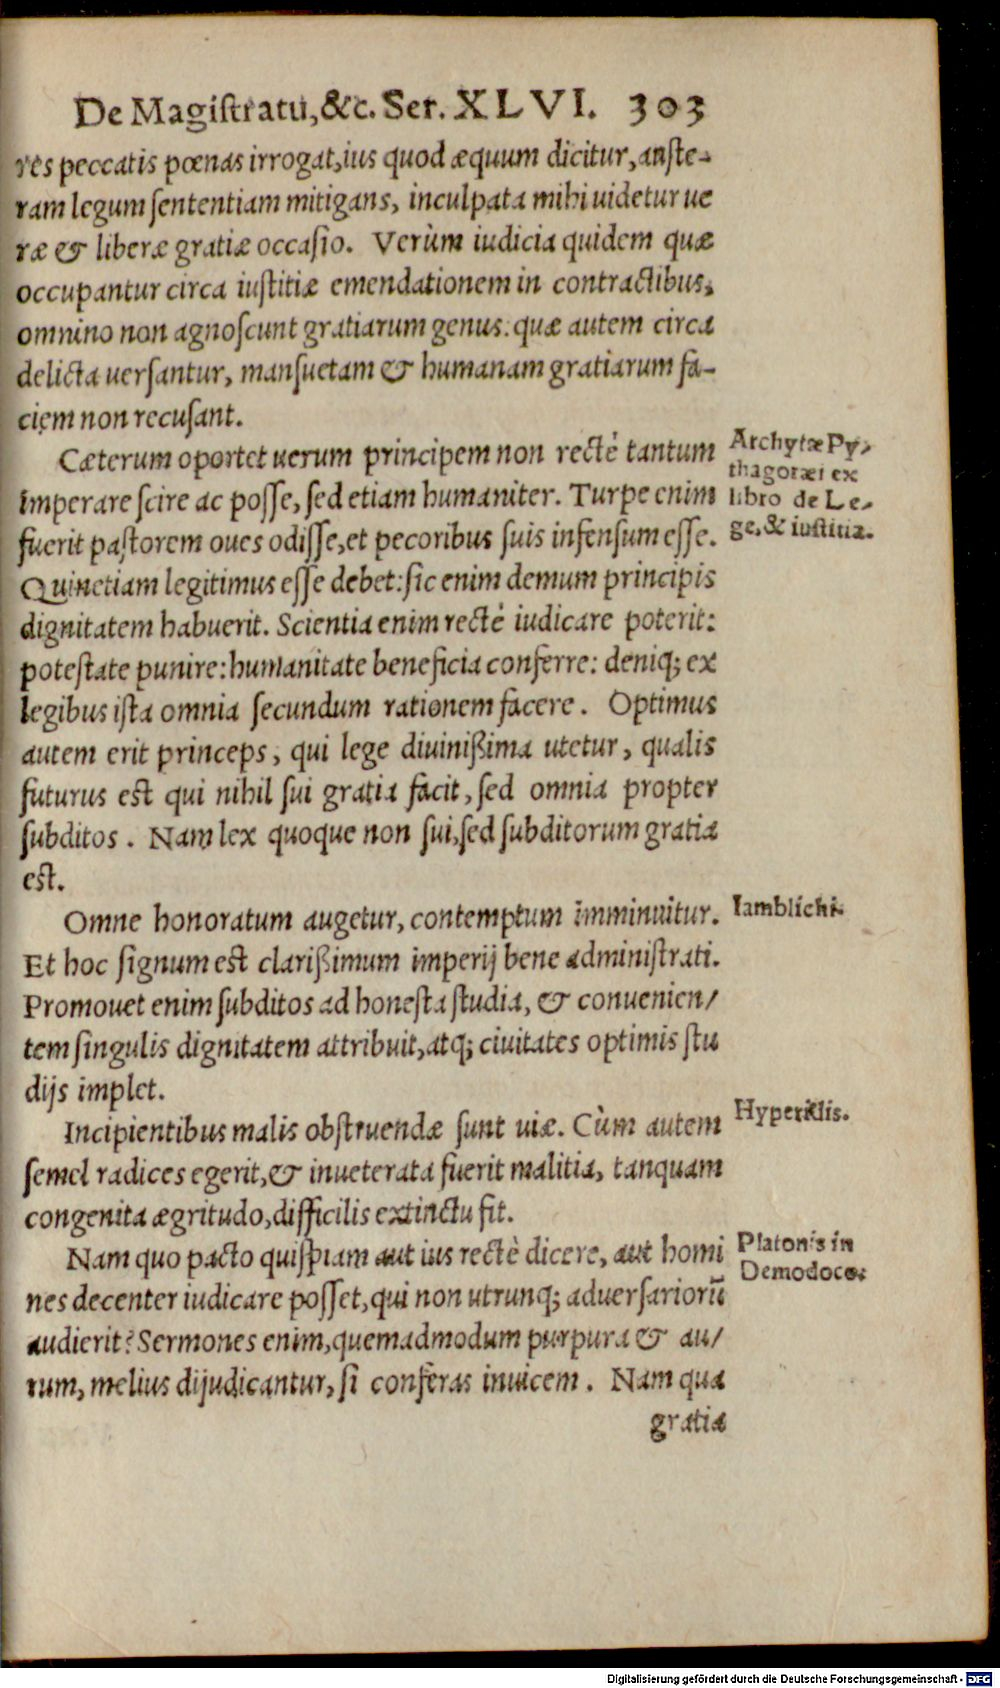 De Magistratu, &c. Ser. XLVI. 303
res peccatis pœnas irrogat, ius quod æquum dicitur, auste-
ram legum sententiam mitigans, inculpata mihi uidetur ue
ræ & liberæ gratiæ occasio. Verùm iudicia quidem quæ
occupantur circa iustitiæ emendationem in contractibus,
omnino non agnoscunt gratiarum genus: quæ autem circa
delicta uersantur, mansuetam & humanam gratiarum fa-
ciem non recusant.
Cæterum oportet uerum principem non rectè tantum
imperare scire ac posse, sed etiam humaniter. Turpe enim
fuerit pastorem oues odisse, et pecoribus suis infensum esse.
Quinetiam legitimus esse debet: sic enim demum principis
dignitatem habuerit. Scientia enim rectè iudicare poterit:
potestate punire: humanitate beneficia conferre: deniq; ex
legibus ista omnia secundum rationem facere. Optimus
autem erit princeps, qui lege diuinißima utetur, qualis
futurus est qui nihil sui gratia facit, sed omnia propter
subditos. Nam lex quoque non sui, sed subditorum gratia
est.
Archytæ Py-
thagoræi ex
libro de Le-
ge, & iustitia.
Omne honoratum augetur, contemptum imminuitur.
Et hoc signum est clarißimum imperij bene administrati.
Promouet enim subditos ad honesta studia, & conuenien/
tem singulis dignitatem attribuit, atq; ciuitates optimis stu
dijs implet.
Iamblichi.
Incipientibus malis obstruendæ sunt uiæ. Cùm autem
semel radices egerit, & inueterata fuerit malitia, tanquam
congenita ægritudo, difficilis extinctu fit.
Hyperidis.
Nam quo pacto quispiam aut ius rectè dicere, aut homi
nes decenter iudicare posset, qui non utrunq; aduersariorũ
audierit? Sermones enim, quemadmodum purpura & au/
rum, melius dijudicantur, si conferas inuicem. Nam qua
Platonis in
Demodoco.
gratia
Digitalisierung gefördert durch die Deutsche Forschungsgemeinschaft - DFG